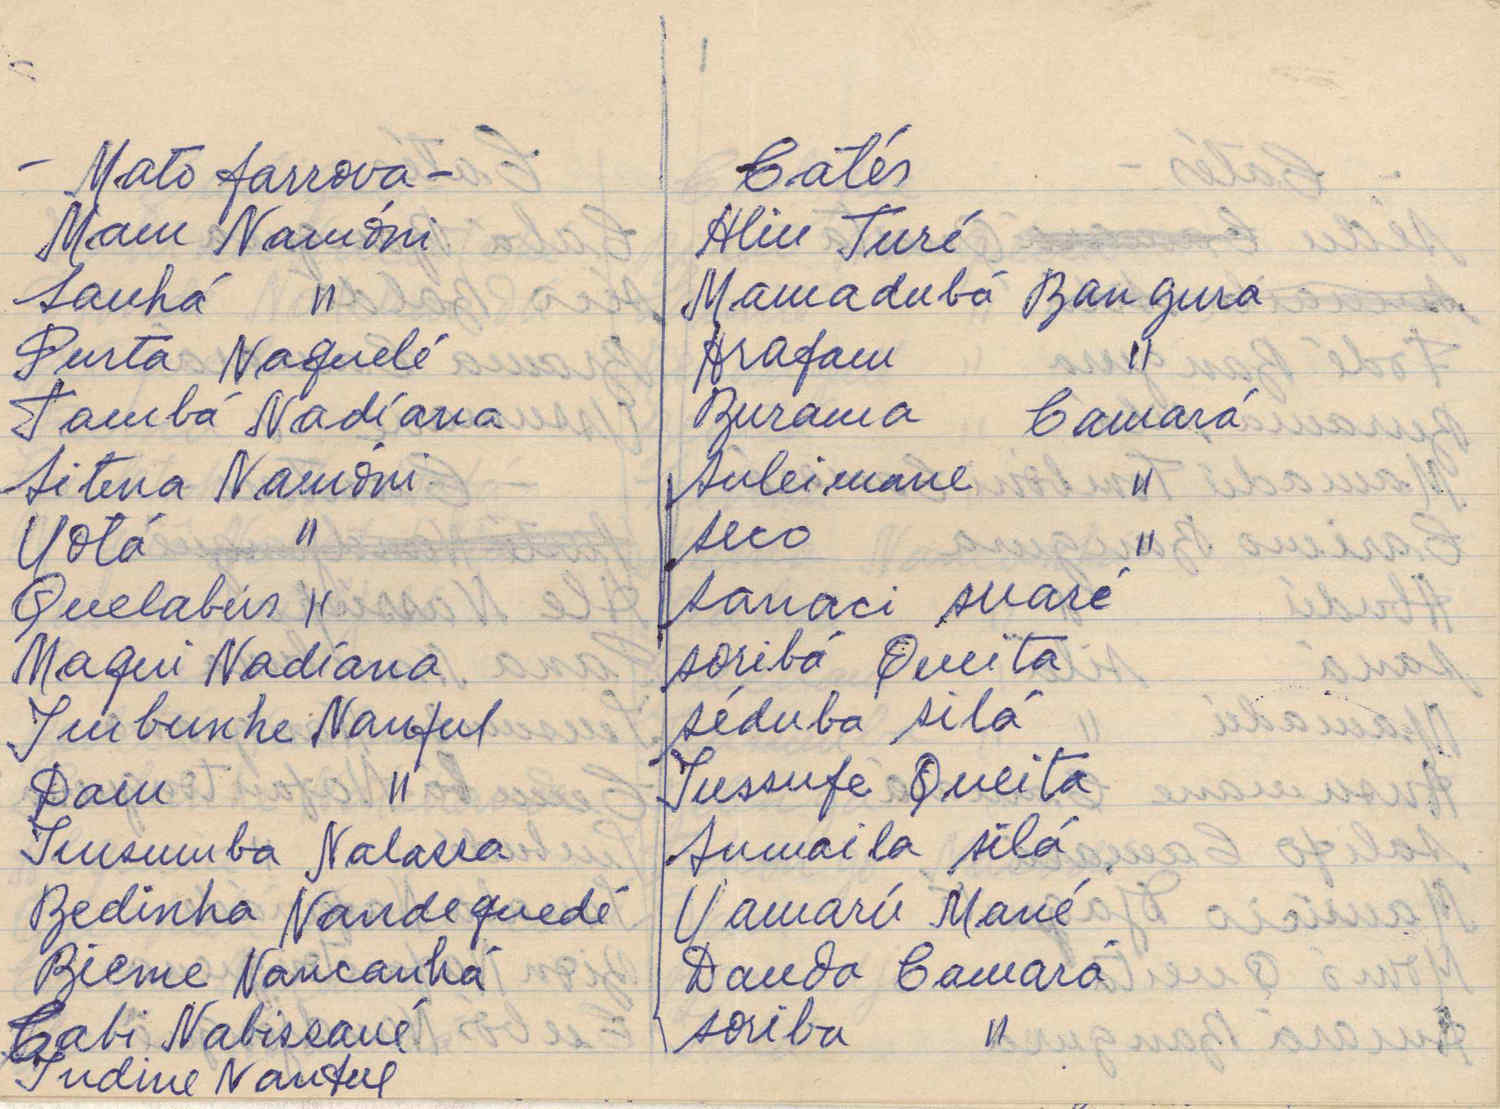 - Mato farrova -
Mam Namóni
Sanhá "
Purta Naguelé
Tambá Nadíana
Sitena Namóni
Yotá "
Quelabús "
Maqui Nadíana
Imbunhe Nanful
Dam "
Insumba Nalassa
Bedinha Nandeguedé
Bieme Nancanhá
Cabi Nabissané
Indine Nanful
Catés
Aliu Turé
Mamadubá Bangura
Arafam "
Burama Camará
Suleimane "
Seco "
Sanaci Suaré
Soribá Queita
Séduba Silá
Iussufe Queita
Sumaila Silá
Yamarú Mané
Dauda Camará
Soriba "